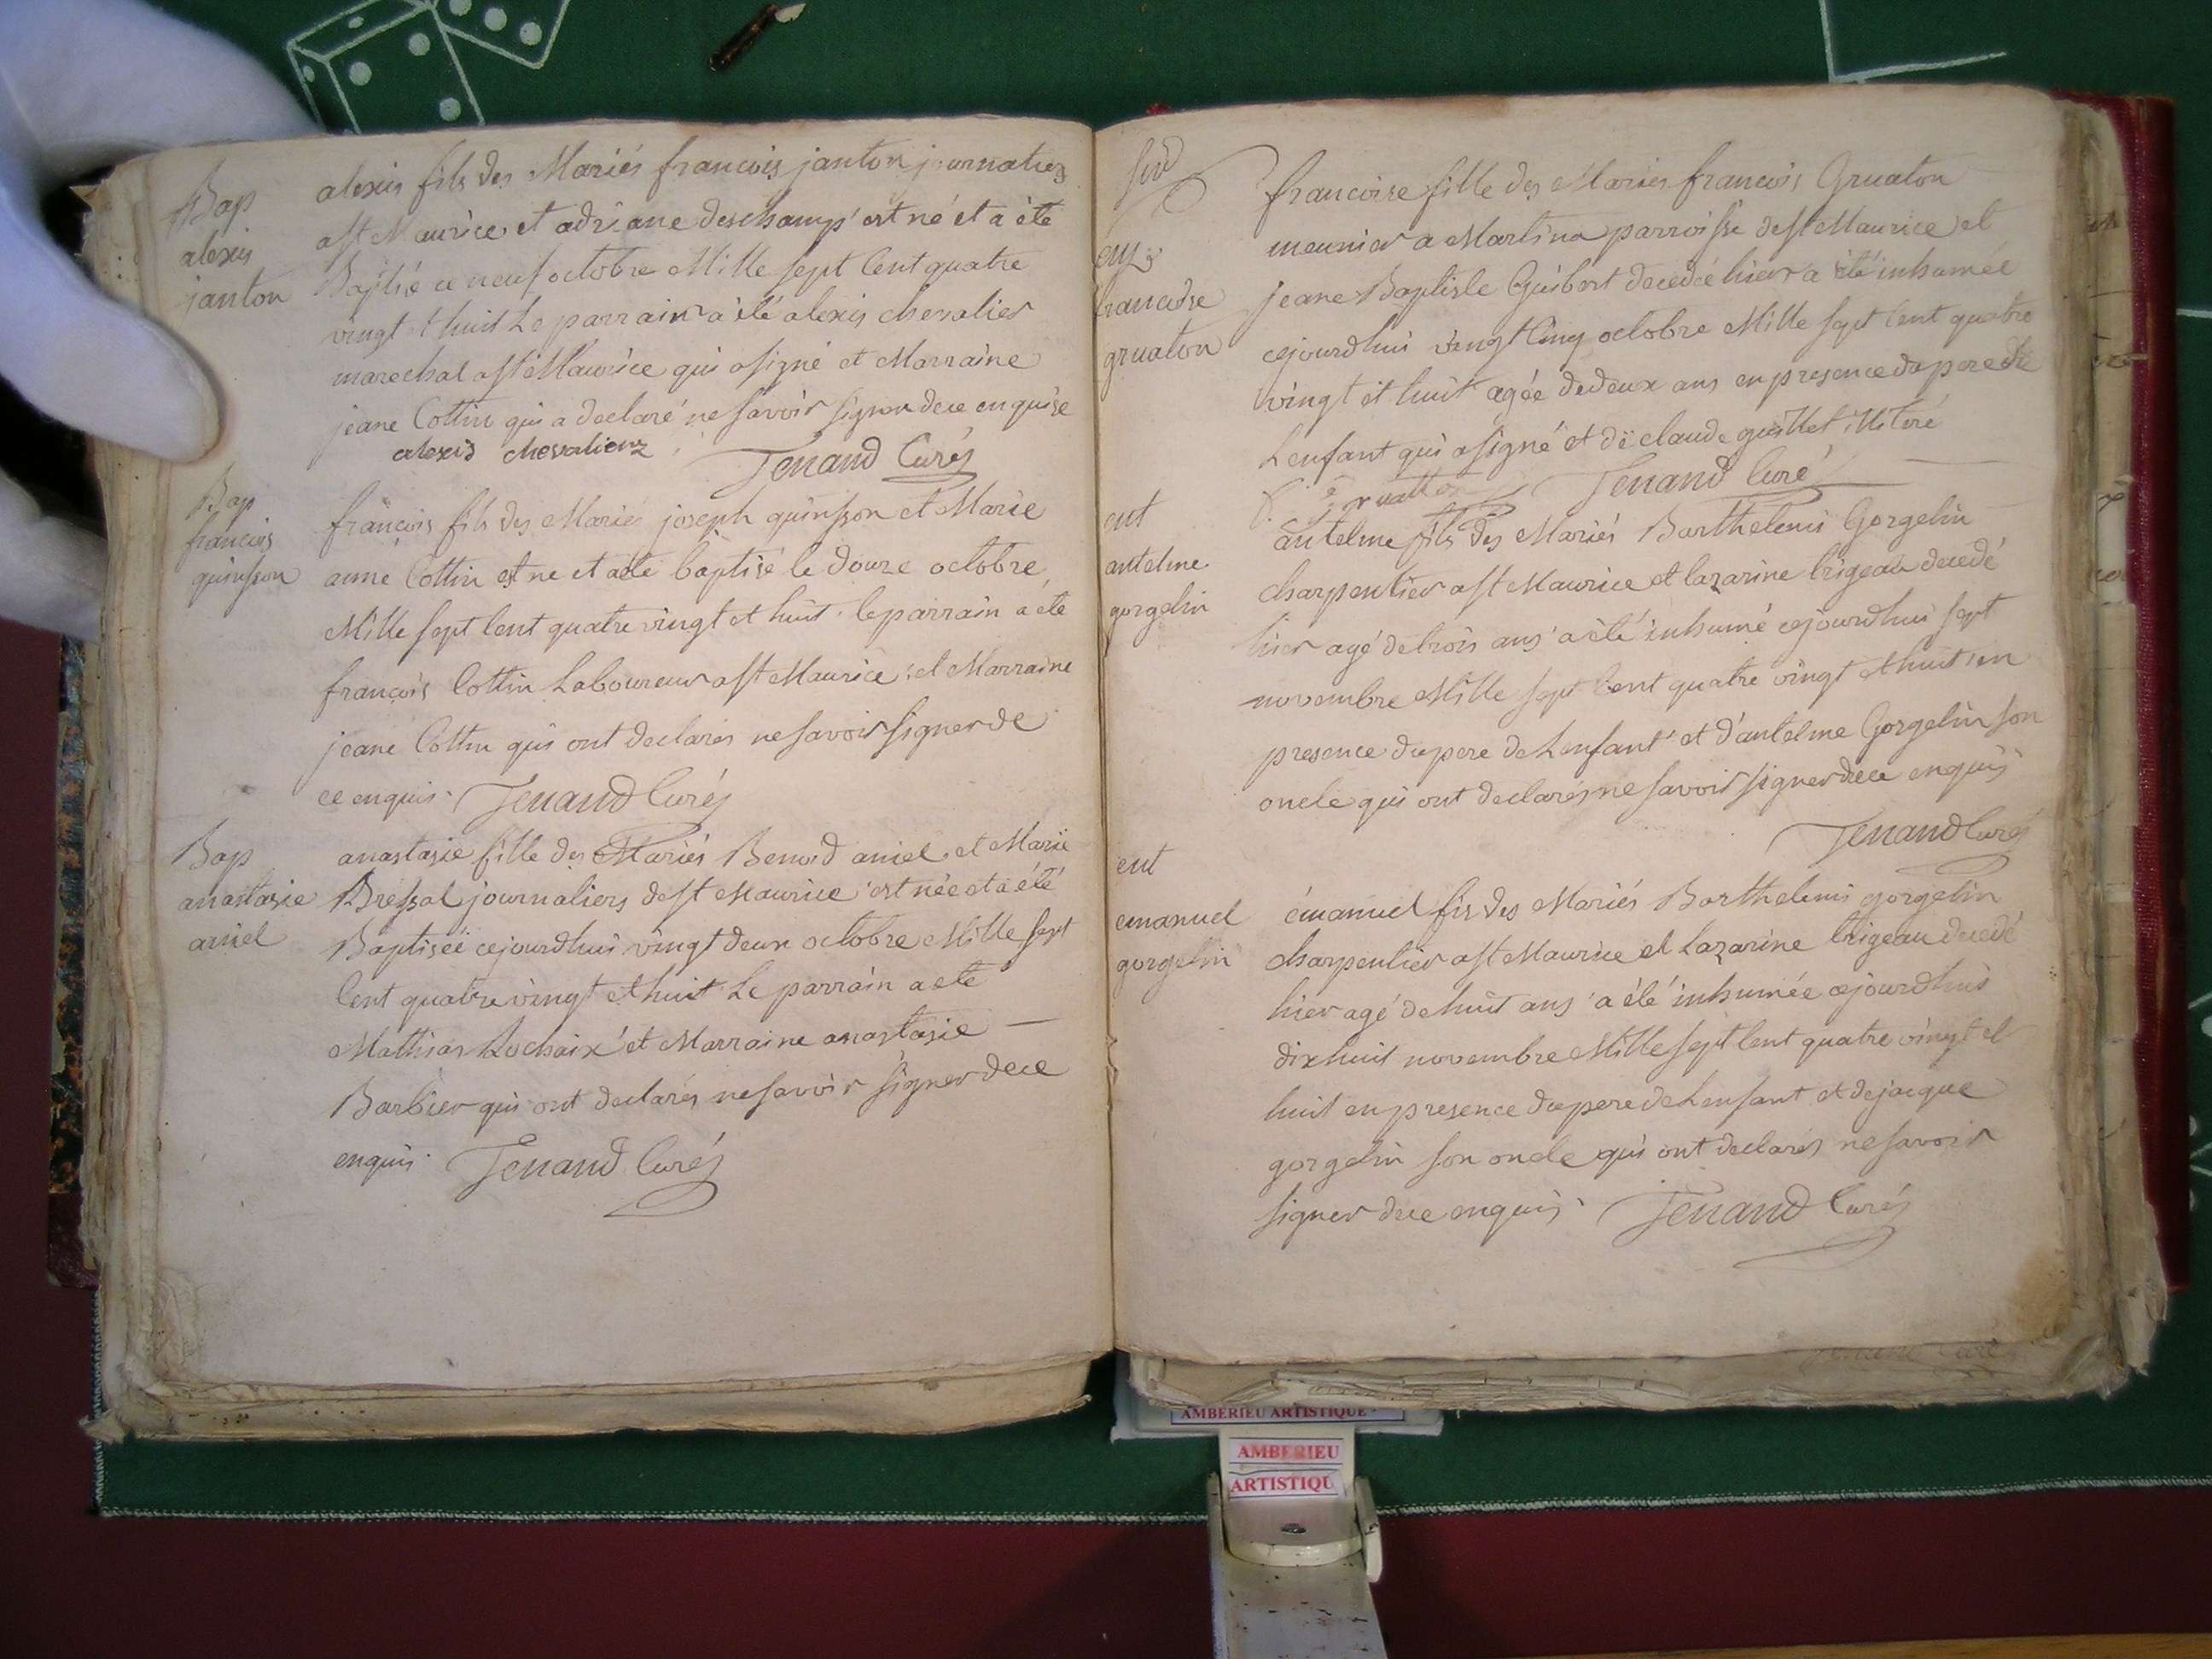 Bap
alexis
janton
alexis fils des Mariés francois janton journaliers
a st Maurice et adriane deschamp' est né et a été
Baptisé ce neuf octobre Mille sept Cent quatre
vingt et huit Le parrain a été alexis chevalier
marechal a st Maurice qui a signé et Marraine
jeane Cottin qui a declaré ne savoir signer de ce enquise
alexis chevalier
Tenand Curé
Bap
francois
quinsson
françois fils des Mariés joseph quinsson et Marie
anne Cottin est ne et a ete baptisé le douze octobre
Mille sept Cent quatre vingt et huit. le parrain a ete
françois Cottin Laboureur a st Maurice et Marraine
jeane Cottin qui ont declarés ne savoir signer de
ce enquis. Tenand Curé
Bap
anastasie
aniel
anastasie fille des Mariés Benoid aniel et Marie
Bressal journaliers de st Maurice est née et a été
Baptiseé cejourdhui vingt deux octobre Mille sept
Cent quatre vingt et huit Le parrain a ete
Mathias Lochaix et Marraine anastasie
Barbier qui ont declarés ne savoir signer de ce
enquis. Tenand Curé
francoise
gruaton
francoise fille des Mariés francois Gruaton
meunier a Martina parroisse de st Maurice et
jeane Baptiste Guibert decedeé hier a été inhumeé
cejourdhui vingt Cinq octobre Mille sept Cent quatre
vingt et huit agée de deux ans en presence du pere de
L enfant qui a signé et de claude guillet illiteré
Tenand Curé
ent
antelme
gorgelin
antelme fils des Mariés Barthelemi Gorgelin
charpentier a st Maurice et lazarine trigeau decedé
hier agé de trois ans a été inhumé cejourdhui sept
novembre Mille sept Cent quatre vingt et huit en
presence du pere de L enfant et d'antelme Gorgelin son
oncle qui ont declarés ne savoir signer de ce enquis
Tenand Curé
ent
emanuel
gorgelin
émanuel fis des Mariés Barthelemi gorgelin
charpentier a st Maurice et Lazarine trigeau decedé
hier agé de huit ans a été inhumée cejourdhui
dix huit novembre Mille sept Cent quatre vingt et
huit en presence du pere de L enfant et de jacque
gorgelin son oncle qui ont declarés ne savoir
signer de ce enquis. Tenand Curé
AMBERIEU ARTISTIQUE
AMBERIEU
ARTISTIQU